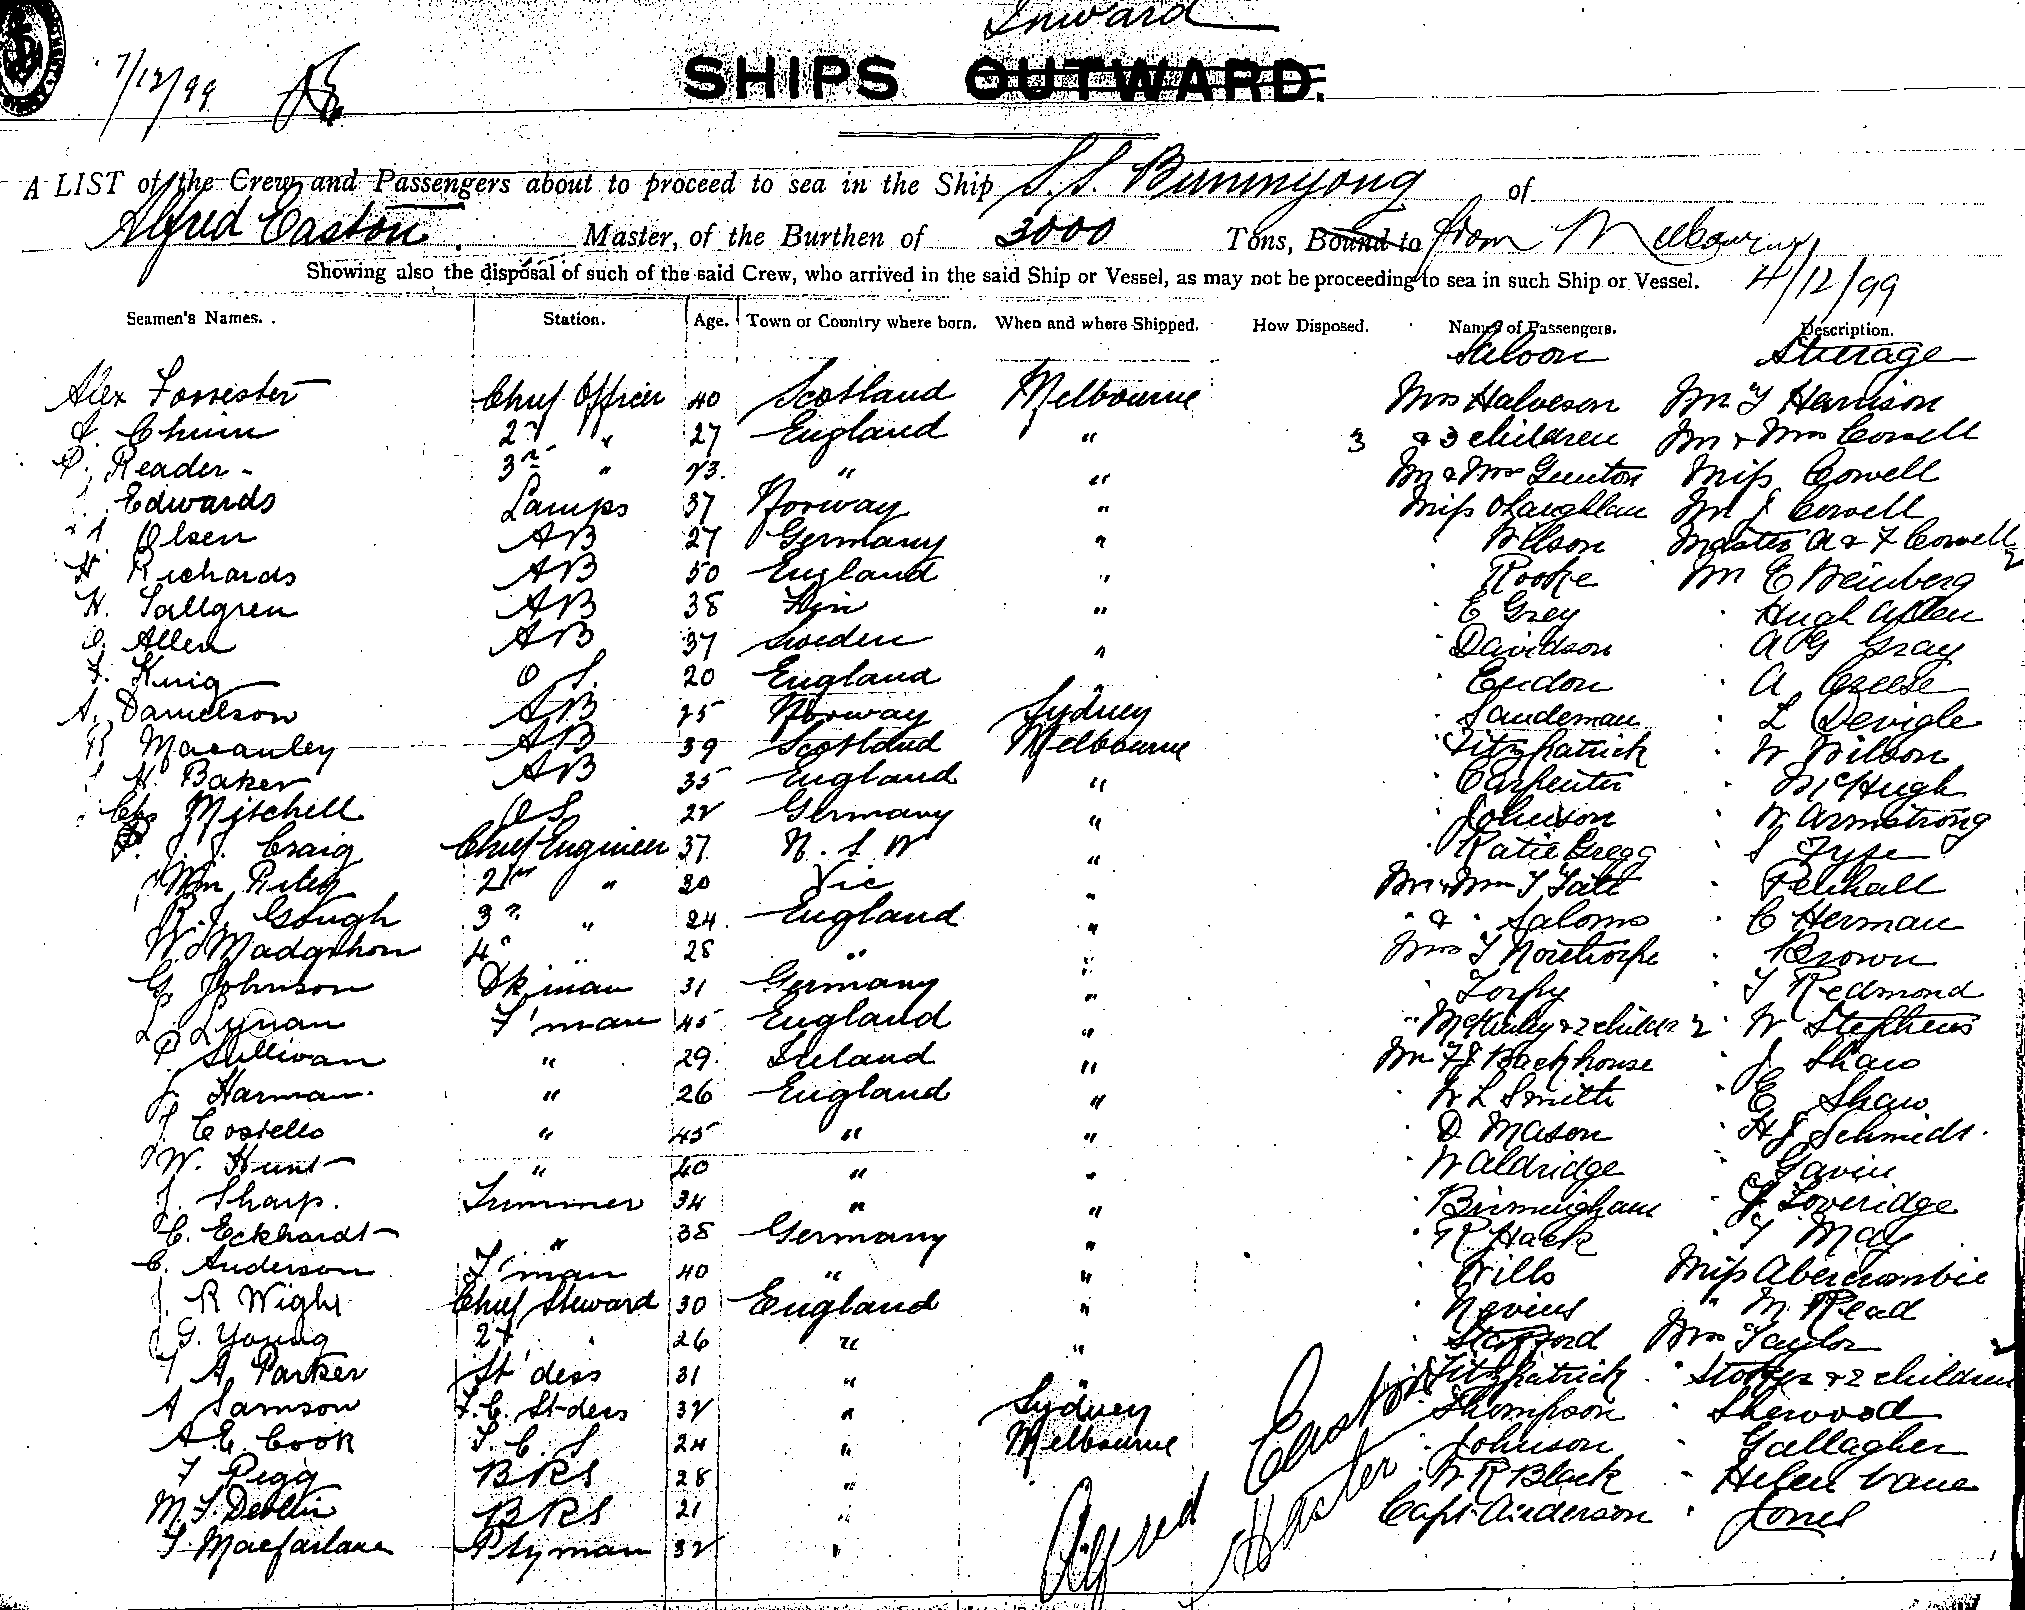 Inward
7/12/99
SHIPS OUTWARD.
A LIST of the Crew and Passengers about to proceed to sea in the Ship S.S. Bunninyong of
Alfred Easton Master, of the Burthen of 3000 Tons, Bound to from Melbourne
Showing also the disposal of such of the said Crew, who arrived in the said Ship or Vessel, as may not be proceeding to sea in such Ship or Vessel. 4/12/99
Seamen's Names. Station. Age. Town or Country where born. When and where Shipped. How Disposed. Names of Passengers. Description.
Saloon Steerage
Alex Forrester Chief Officer 40 Scotland Melbourne Mrs Halveson Mr T Harrison
Chinn 2nd " 27 England " 3 & 3 children Mr & Mrs Cowell
Reader 3rd " 23 " " Mr & Mrs Gunton Miss Cowell
Edwards Lamps 37 Norway " Miss OLaughlan Mr J Cowell
Olsen AB 27 Germany " Wilson Master A & F Cowell 2
H Richards AB 50 England " Rooke Mr E Weinberg
H. Sallgren AB 38 Fin " E Grey Hugh Allen
C. Allen AB 37 Sweden " Davidson A G Gray
F. King O S. 20 England " Eudon A Creese
A. Danielson AB 25 Norway Sydney Sandeman L Devigle
R Macauley AB 39 Scotland Melbourne Fitzpatrick W Wilson
H. Baker AB 35 England " Carpenter McHugh
Chs Mitchell OS 22 Germany " Johnson W Armstrong
J. Craig Chief Engineer 37 N. S W " Katie Gregg S Fyfe
Wm Riley 2nd " 30 Vic " Mr & Mrs T Tait Pelhall
R. J. Gough 3rd " 24 England " " & " Saloms C Herman
W. Madgshon 4 " 28 " " Mrs T Northorpe Brown
G Johnson Dkman 31 Germany " Torpy T Redmond
L. Lynan F'man 45 England " McKinley & 2 childn 2 W Stephens
P. Sullivan " 29 Ireland " Mr F J Backhouse J Shaw
J. Harman " 26 England " W L Smith E Shaw
J. Costello " 45 " " D Mason H J Schmidt
W. Hunt " 40 " " W Aldridge Gavin
J. Sharp. Trimmer 34 " " Birmingham J Loveridge
C. Eckhardt " 38 Germany " R Hack T May
C. Anderson F'man 40 " " Wills Miss Abercrombie
J. R Wight Chief Steward 30 England " Nevins " M Read
G. Young 2d " 26 " " Stafford Mrs Taylor
A. Parker St'dess 31 " " Fitzpatrick " Stokes & 2 children 2
A Samson F.C. St-dess 32 " Sydney Thompson " Sherwood
A E. Cook S. C. S 24 " Melbourne Johnson Gallagher
F Pegg BRS 28 " W R Black " Helen Vane
M. J. Devlin BRS 21 " Capt. Anderson " Jones
T. Macfarlane P tyman 32 "
Alfred Easton
Master